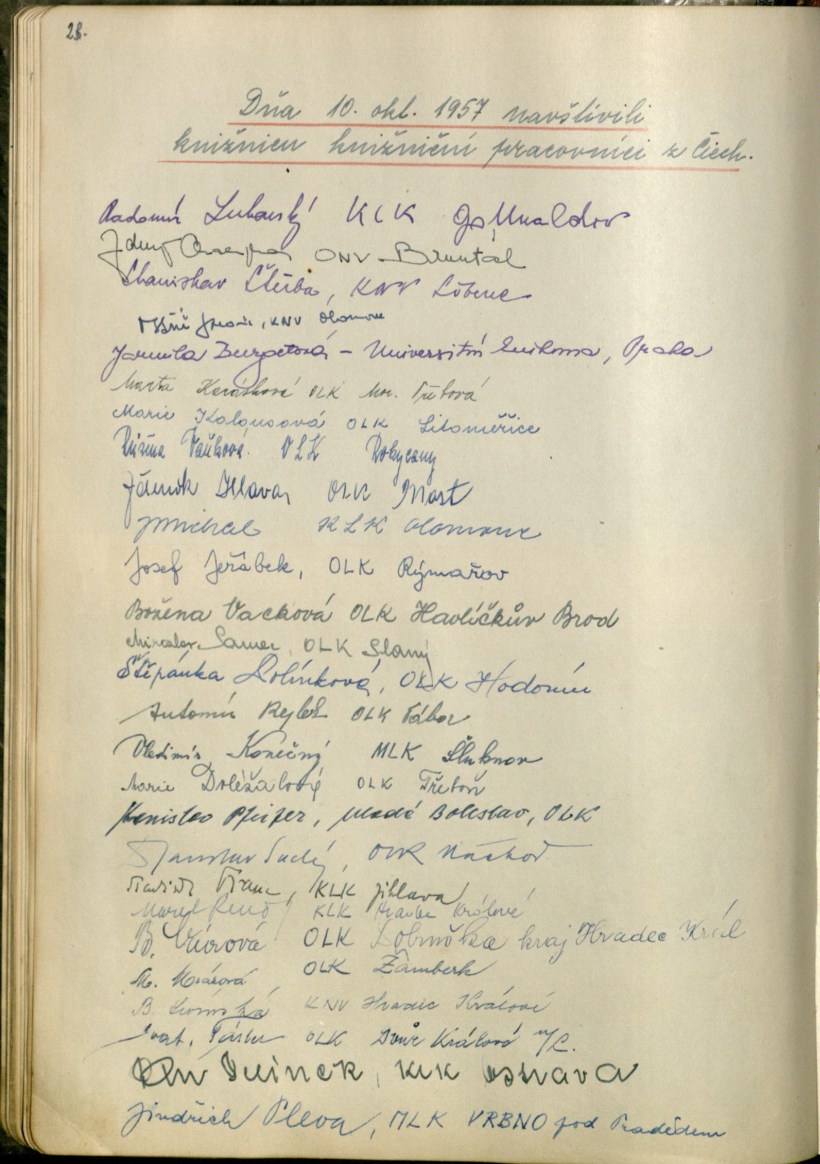 28.
Dňa 10. okt. 1957 navštívili
knižnicu knižniční pracovníci z Čiech.
Radomír KLK Gottwaldov
ONV - Bruntál
Stanislav Štěrba, KNV Liberec
KNV Olomouc
Jarmila - Universitní knihovna, Praha
Marta OLK Mor. Třebová
Marie Kalousová OLK Litoměřice
Růžena Vaňková OLK Rokycany
Zdeněk Hlavan OLK Most
JMichal KLK Olomouc
Josef Jeřábek, OLK Rýmařov
Božena Vacková OLK Havlíčkův Brod
Miroslav OLK Slaný
Štěpánka Dolínková, OLK Hodonín
Antonín OLK Tábor
Vladimír Konečný MLK Šluknov
Marie Doležalová OLK Třeboň
Stanislav Pfeifer, Mladá Boleslav, OLK
Stanislav Suchý, OLK Náchod
KLK Jihlava
KLK Hradec Králové
B. OLK Dobruška kraj Hradec Král
M. OLK Žamberk
B. KNV Hradec Králové
OLK Dvůr Králové n/L.
KLK Ostrava
Jindřich Pleva, MLK VRBNO pod Pradědem